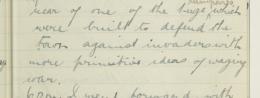 ramparts
rear of one of the huge, which
were built to defend the
town against invaders with
more primitive ideas of waging
war.
I went forward with